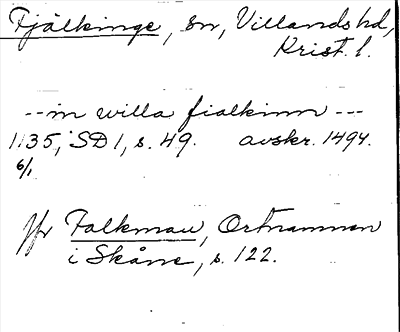 Fjälkinge, sn, Villands hd,
Krist. l.
-- in willa fialkinn ---
1135, SD 1, s. 49. avskr. 1494.
6/1
Jfr Falkman, Ortnamnen
i Skåne, s. 122.